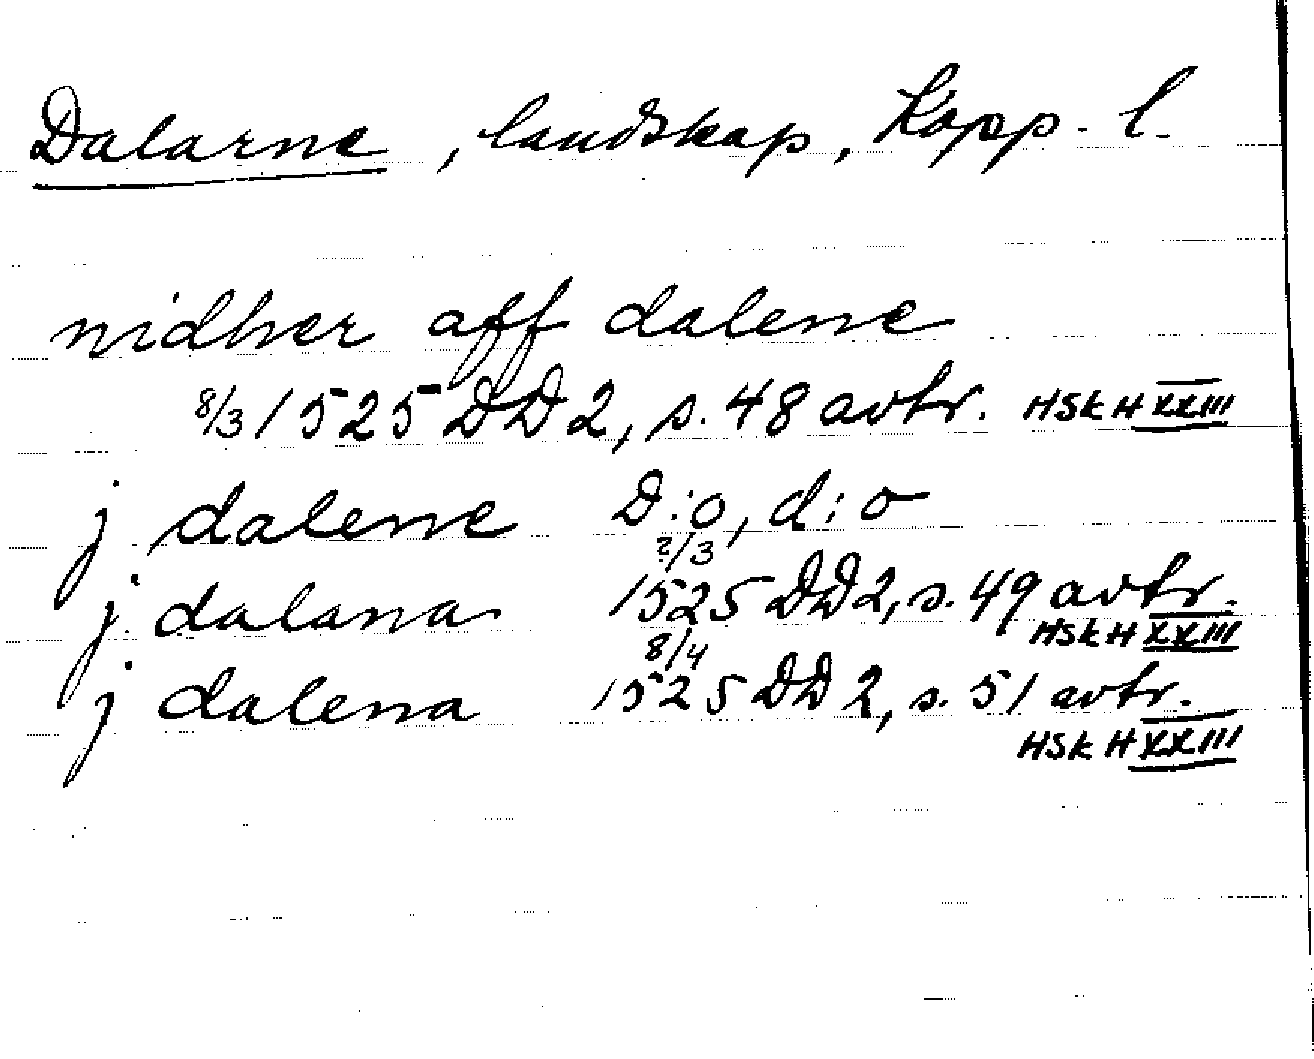 Dalarne, landskap, Kopp. l.
nidher aff dalene
8/3 1525 DD 2, s. 48 avtr. HSk H XXIII
j dalene D:o, d:o
j dalana ?/3 1525 DD 2, s. 49 avtr.
HSk H XXIII
j dalena 8/4 1525 DD 2, s. 51 avtr.
HSk H XXIII